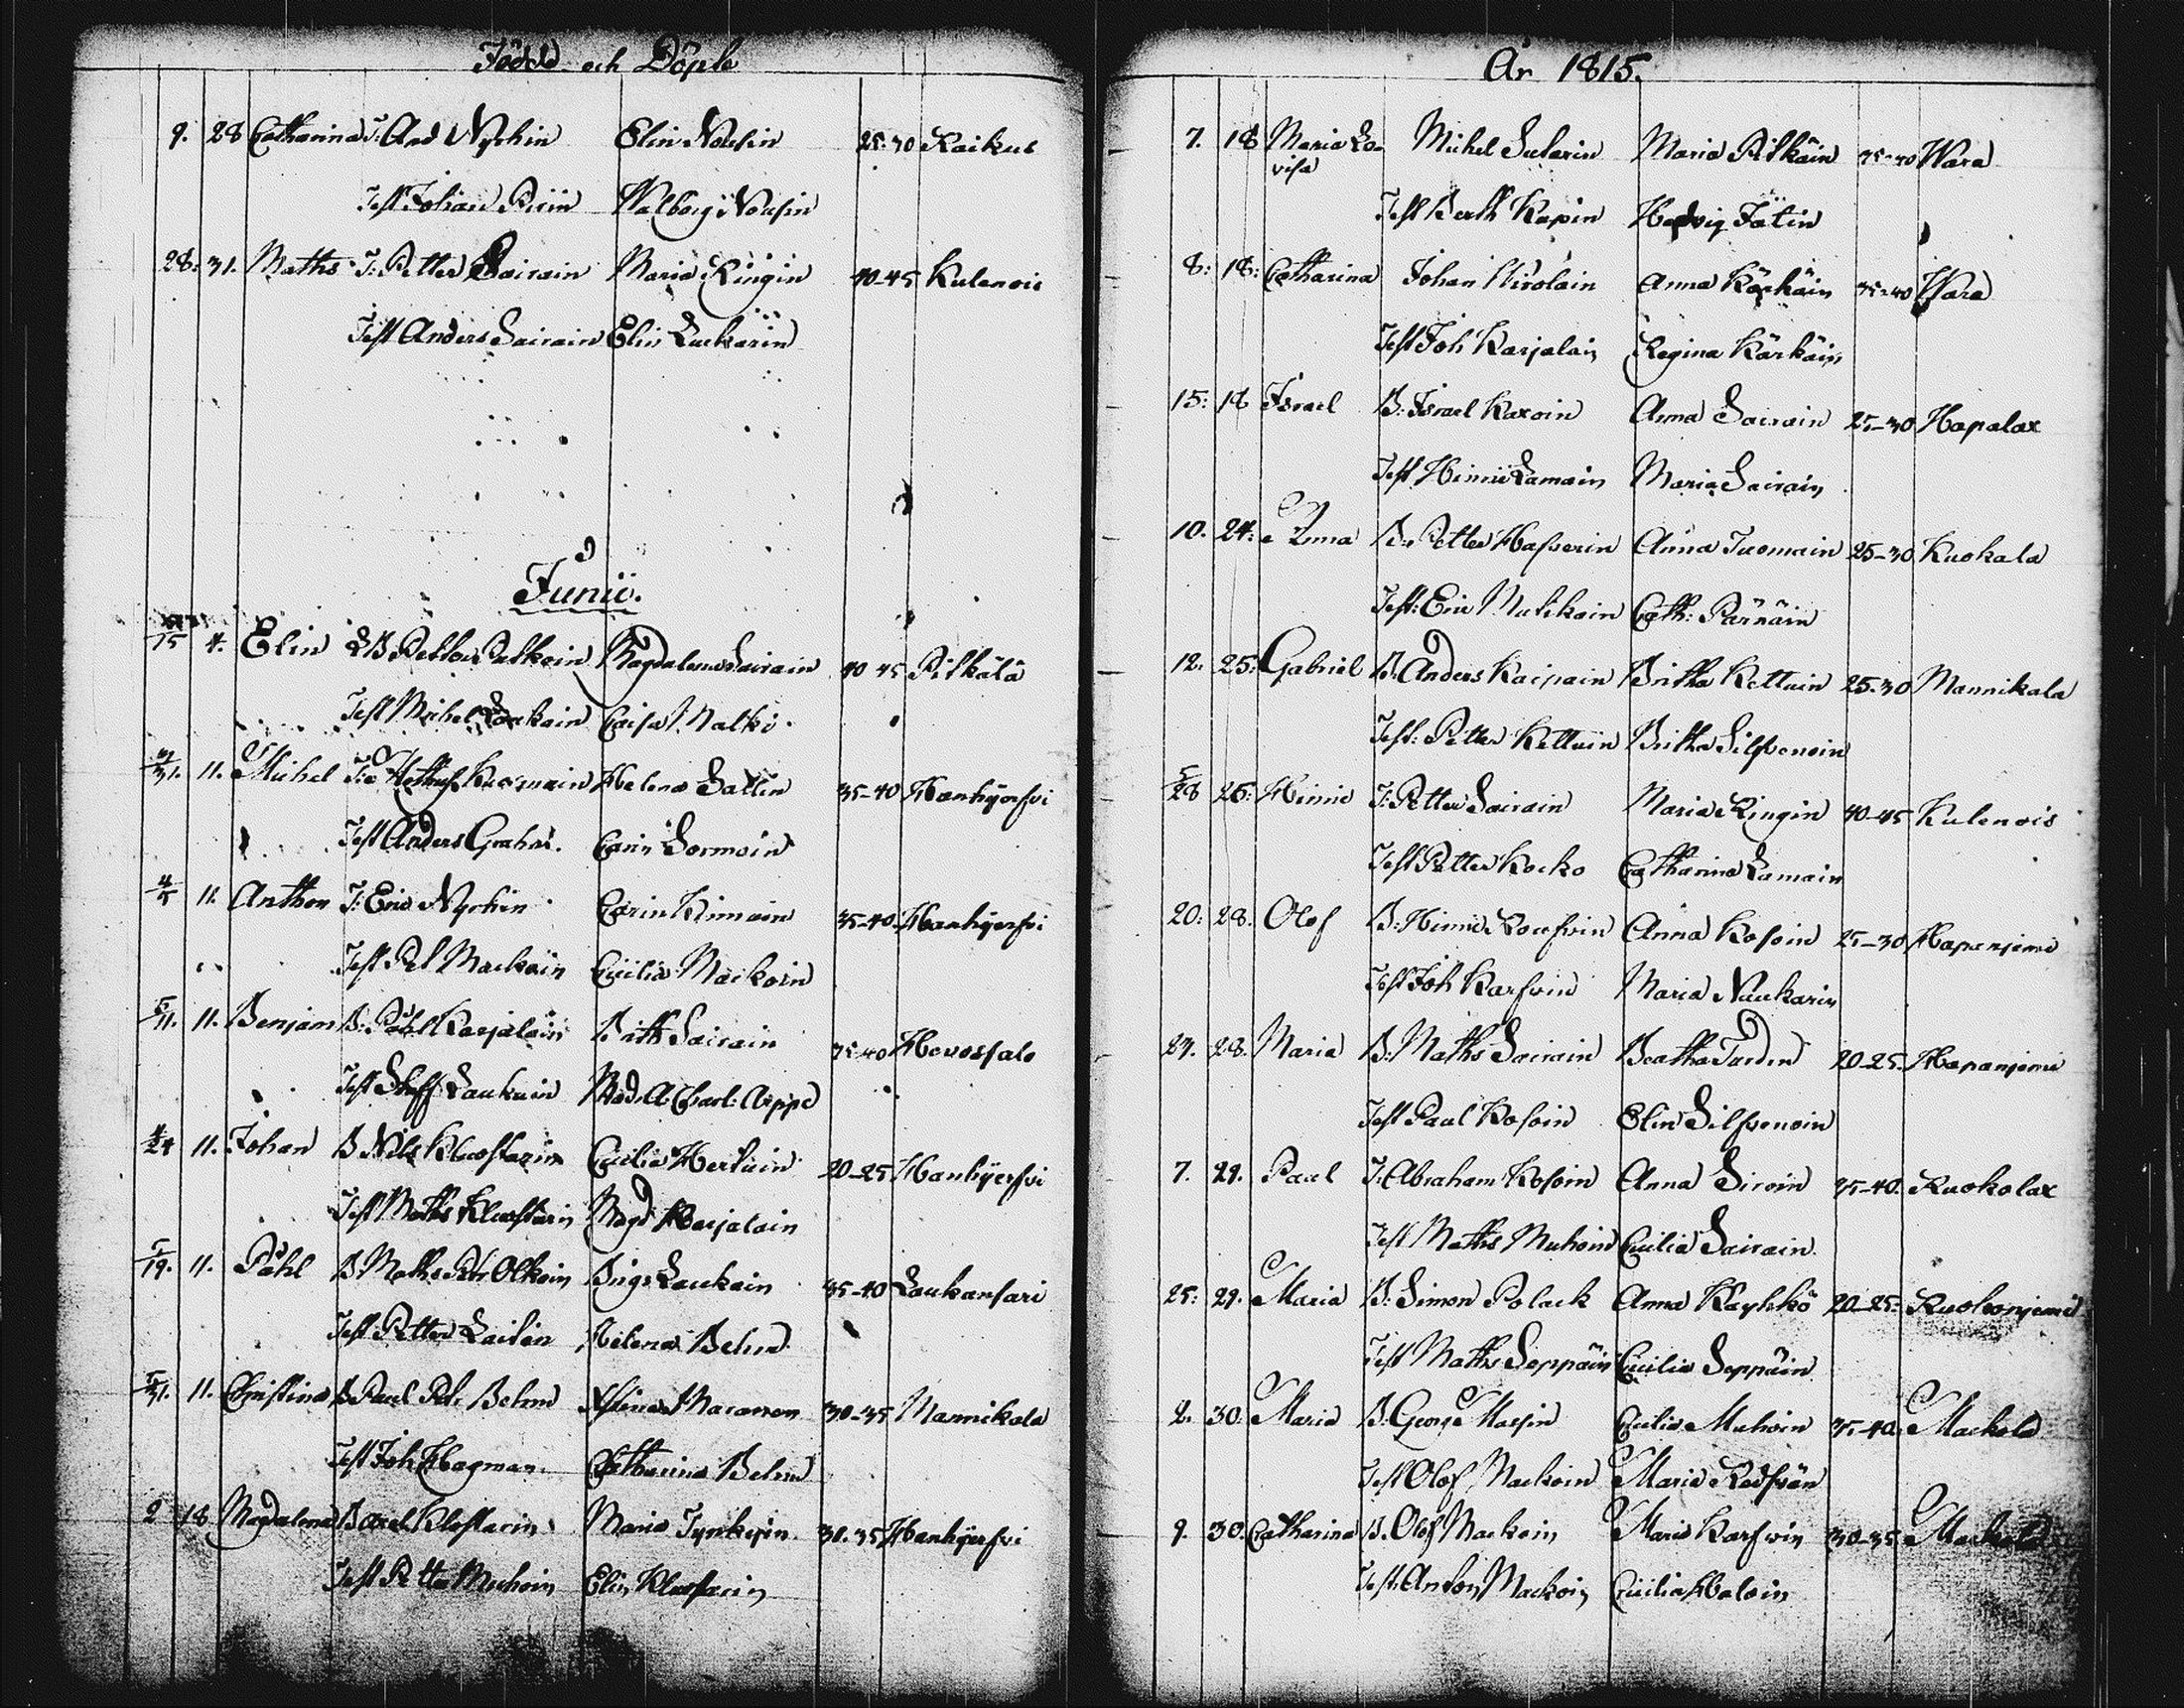 Födde och Döpte
9. 28 Catharina T: And Nychin Elin Nousin 25-30 Raikus
Test Johan Walborg Nousin
28: 31. Maths T: Petter Sairain Maria Ringin 40-45 Kulenois
Test Anders Sairain Elin Luukarin
Junii.
15 4. Elin Magdalena Sairain 40 45 Pitkälä
Test Michel Caisa Malki
31. 11. Michel Helena Lattin 35-40 Hanhijerfvi
Test Anders Grahn. Carin Sormoin
4/5 11. Anthon T: Eric Nychin Carin Kimain 35-40 Hanhijerfvi
Test Pet Mackoin Cecilia Mackoin
5/11. 11. Benjam B: Påhl Karjalain Brith Sairain 35-40 Hevossalo
Test Staff Laukain Mad. A: Charl: Arppe
4/24 11. Johan B Nils Kluostarin Cecilia Hertuin 20-25 Hanhijerfvi
Test Maths Kluostarin Magd Karjalain
5/19. 11. Påhl B Maths Petr Olkoin Birg: Laukain 35-40 Laukansari
Test Petter Laitin Helena Behm
5/31. 11. Christina B Paul Petr Behm Maranen 30-35 Mannikala
Test Joh Hagman Catharina Behm
2 18 Magdalena B Axel Klostarin Maria Tynkyin 30-35 Hanhijerfvi
Test Petter Muhoin Elin Kluostarin
År 1815.
7. 18 Maria Lo- Michel Sutarin Maria Pitkäin 35-40 Wara
visa
Test Berth Kapin Hedvig Fätin
8: 18: Catharina Johan Hirolain Anna Kärkäin 35-40 Wara
Test Joh Karjalain Regina Kärkäin
15: 18 Israel B: Israel Karoin Anna Sairain 25-30 Hapalax
Test Hinric Lamain Maria Sairain
10. 24: Anna B: Petter Hafverin Anna Tuomain 25-30 Kuokala
Test: Eric Mutikain Cath: Pärnäin
12. 25: Gabriel B. Anders Kaipain Britha Kettuin 25-30 Mannikala
Test: Petter Kettuin Britha Silfvenoin
5/28 25: Hinric T: Petter Sairain Maria Ringin 40-45 Kulenois
Test Petter Kocko Catharina Lamain
20: 28. Olof B: Hinric Roufvin Anna Kosoin 25-30 Hapanjemi
Test Joh Karfvin Maria Nuukarin
27. 28. Maria B: Maths Sairain Beatha Tardin 20-25 Hapanjemi
Test Paul Kosoin Elin Silfvenoin
7. 29. Paul T: Abraham Kosoin Anna Siroin 35-40. Ruokolax
Test Maths Muhoin Cecilia Sairain.
25: 29. Maria B: Simon Polack Anna Käyhkö 20-25: Ruokonjemi
Test Maths Seppäin Cecilia Seppäin
2. 30. Maria B: George Massin Cecilia Muhoin 35-40. Mackola
Test Olof Mackoin Maria Rädfvän
9. 30. Catharina B. Olof Mackoin Maria Karfvin 30-35 Mackola
Test: Anton Mackoin Cecilia Haloin